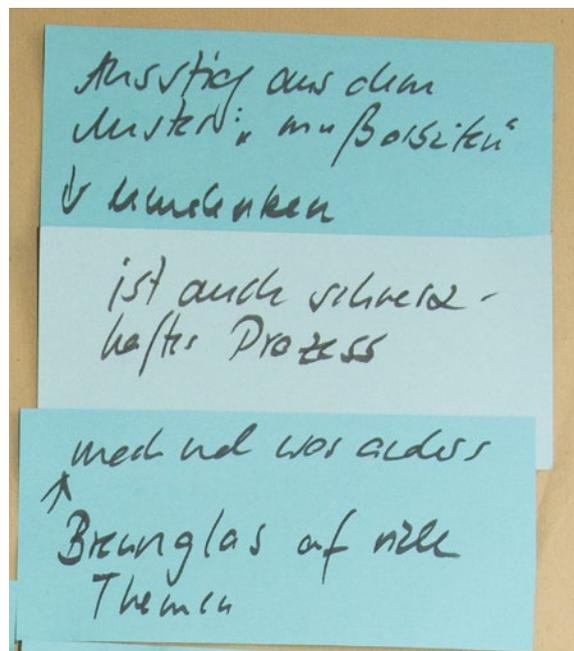 Ausstieg aus dem
Muster: „muß arbeiten“
↓ umdenken
ist auch schmerz-
hafter Prozess
mach mal was anders
↑
Brennglas auf viele
Themen